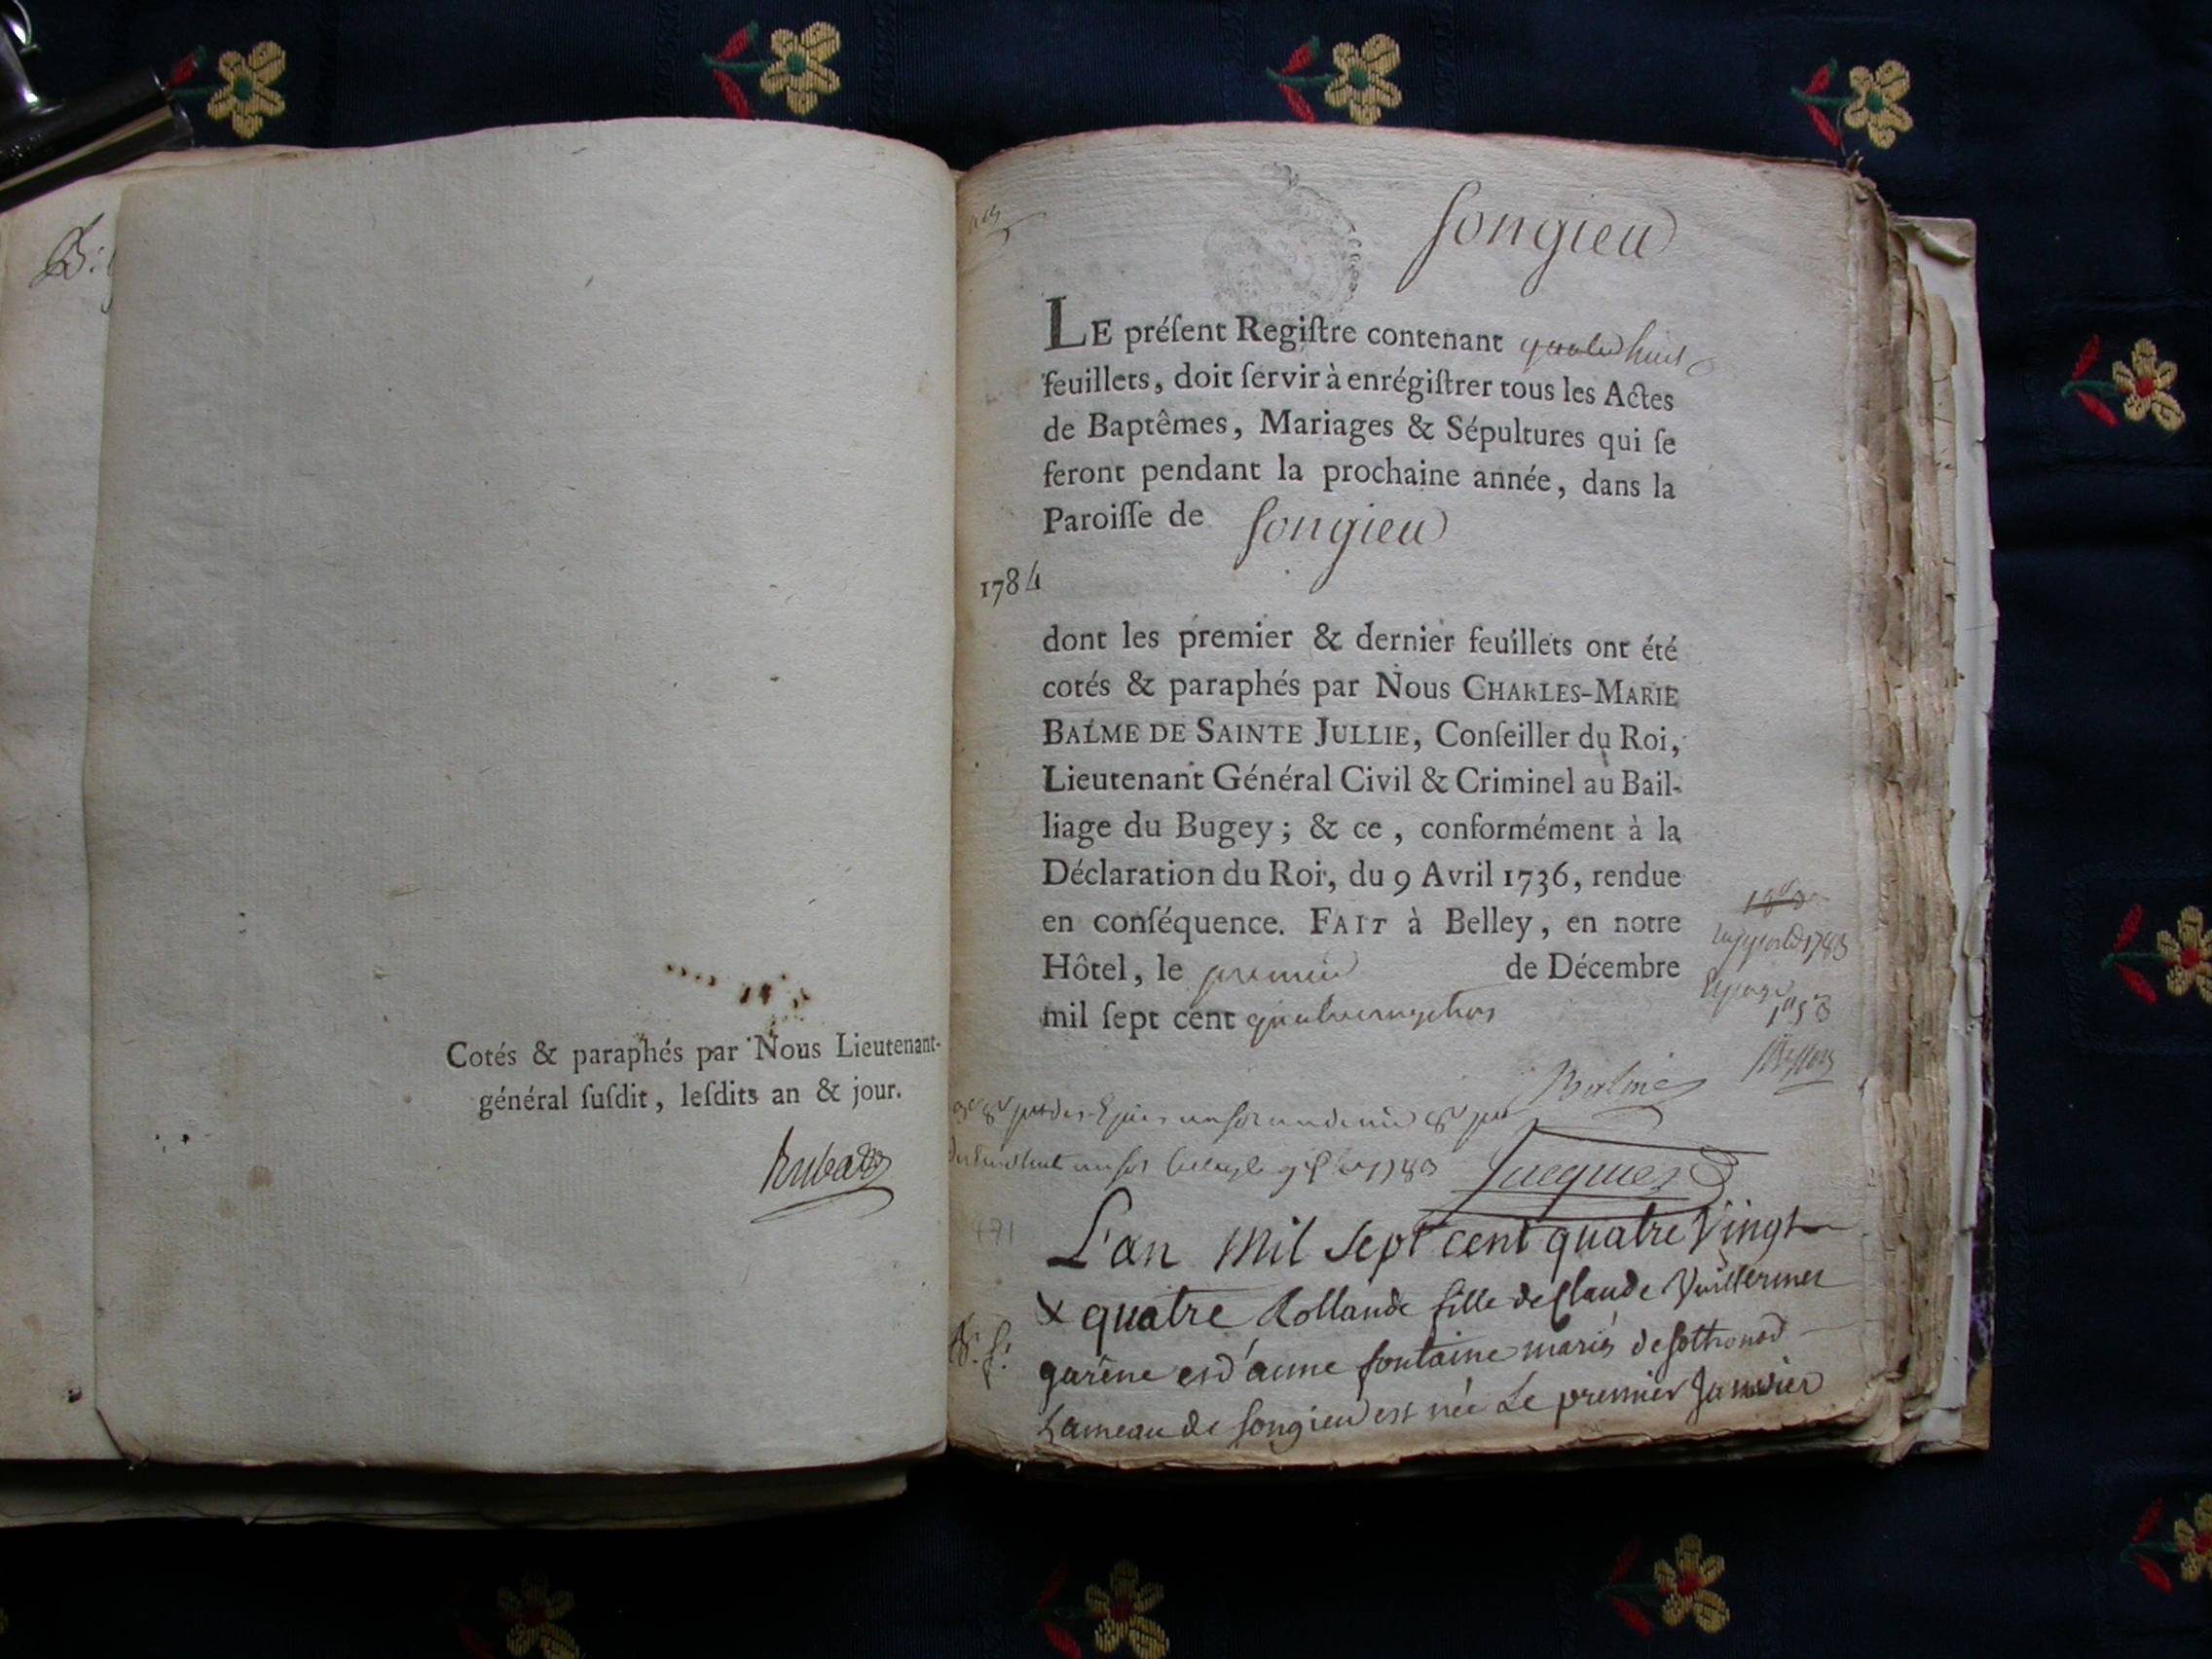 Cotés & paraphés par Nous Lieutenant-
général ſuſdit, leſdits an & jour.
Songieu
LE préſent Regiſtre contenant huit
feuillets, doit ſervir à enrégiſtrer tous les Actes
de Baptêmes, Mariages & Sépultures qui ſe
feront pendant la prochaine année, dans la
Paroiſſe de Songieu
1784
dont les premier & dernier feuillets ont été
cotés & paraphés par Nous CHARLES-MARIE
BALME DE SAINTE JULLIE, Conſeiller du Roi,
Lieutenant Général Civil & Criminel au Bail-
liage du Bugey; & ce, conformément à la
Déclaration du Roi, du 9 Avril 1736, rendue
en conſéquence. FAIT à Belley, en notre
Hôtel, le premier de Décembre
mil ſept cent quatrevingttrois
Balme
Jacques
L'an mil sept cent quatre vingt
& quatre Rollande fille de Claude Vuillermet
garêne et d'anne fontaine mariés de sothonod
hameau de Songieu est née Le premier Janvier